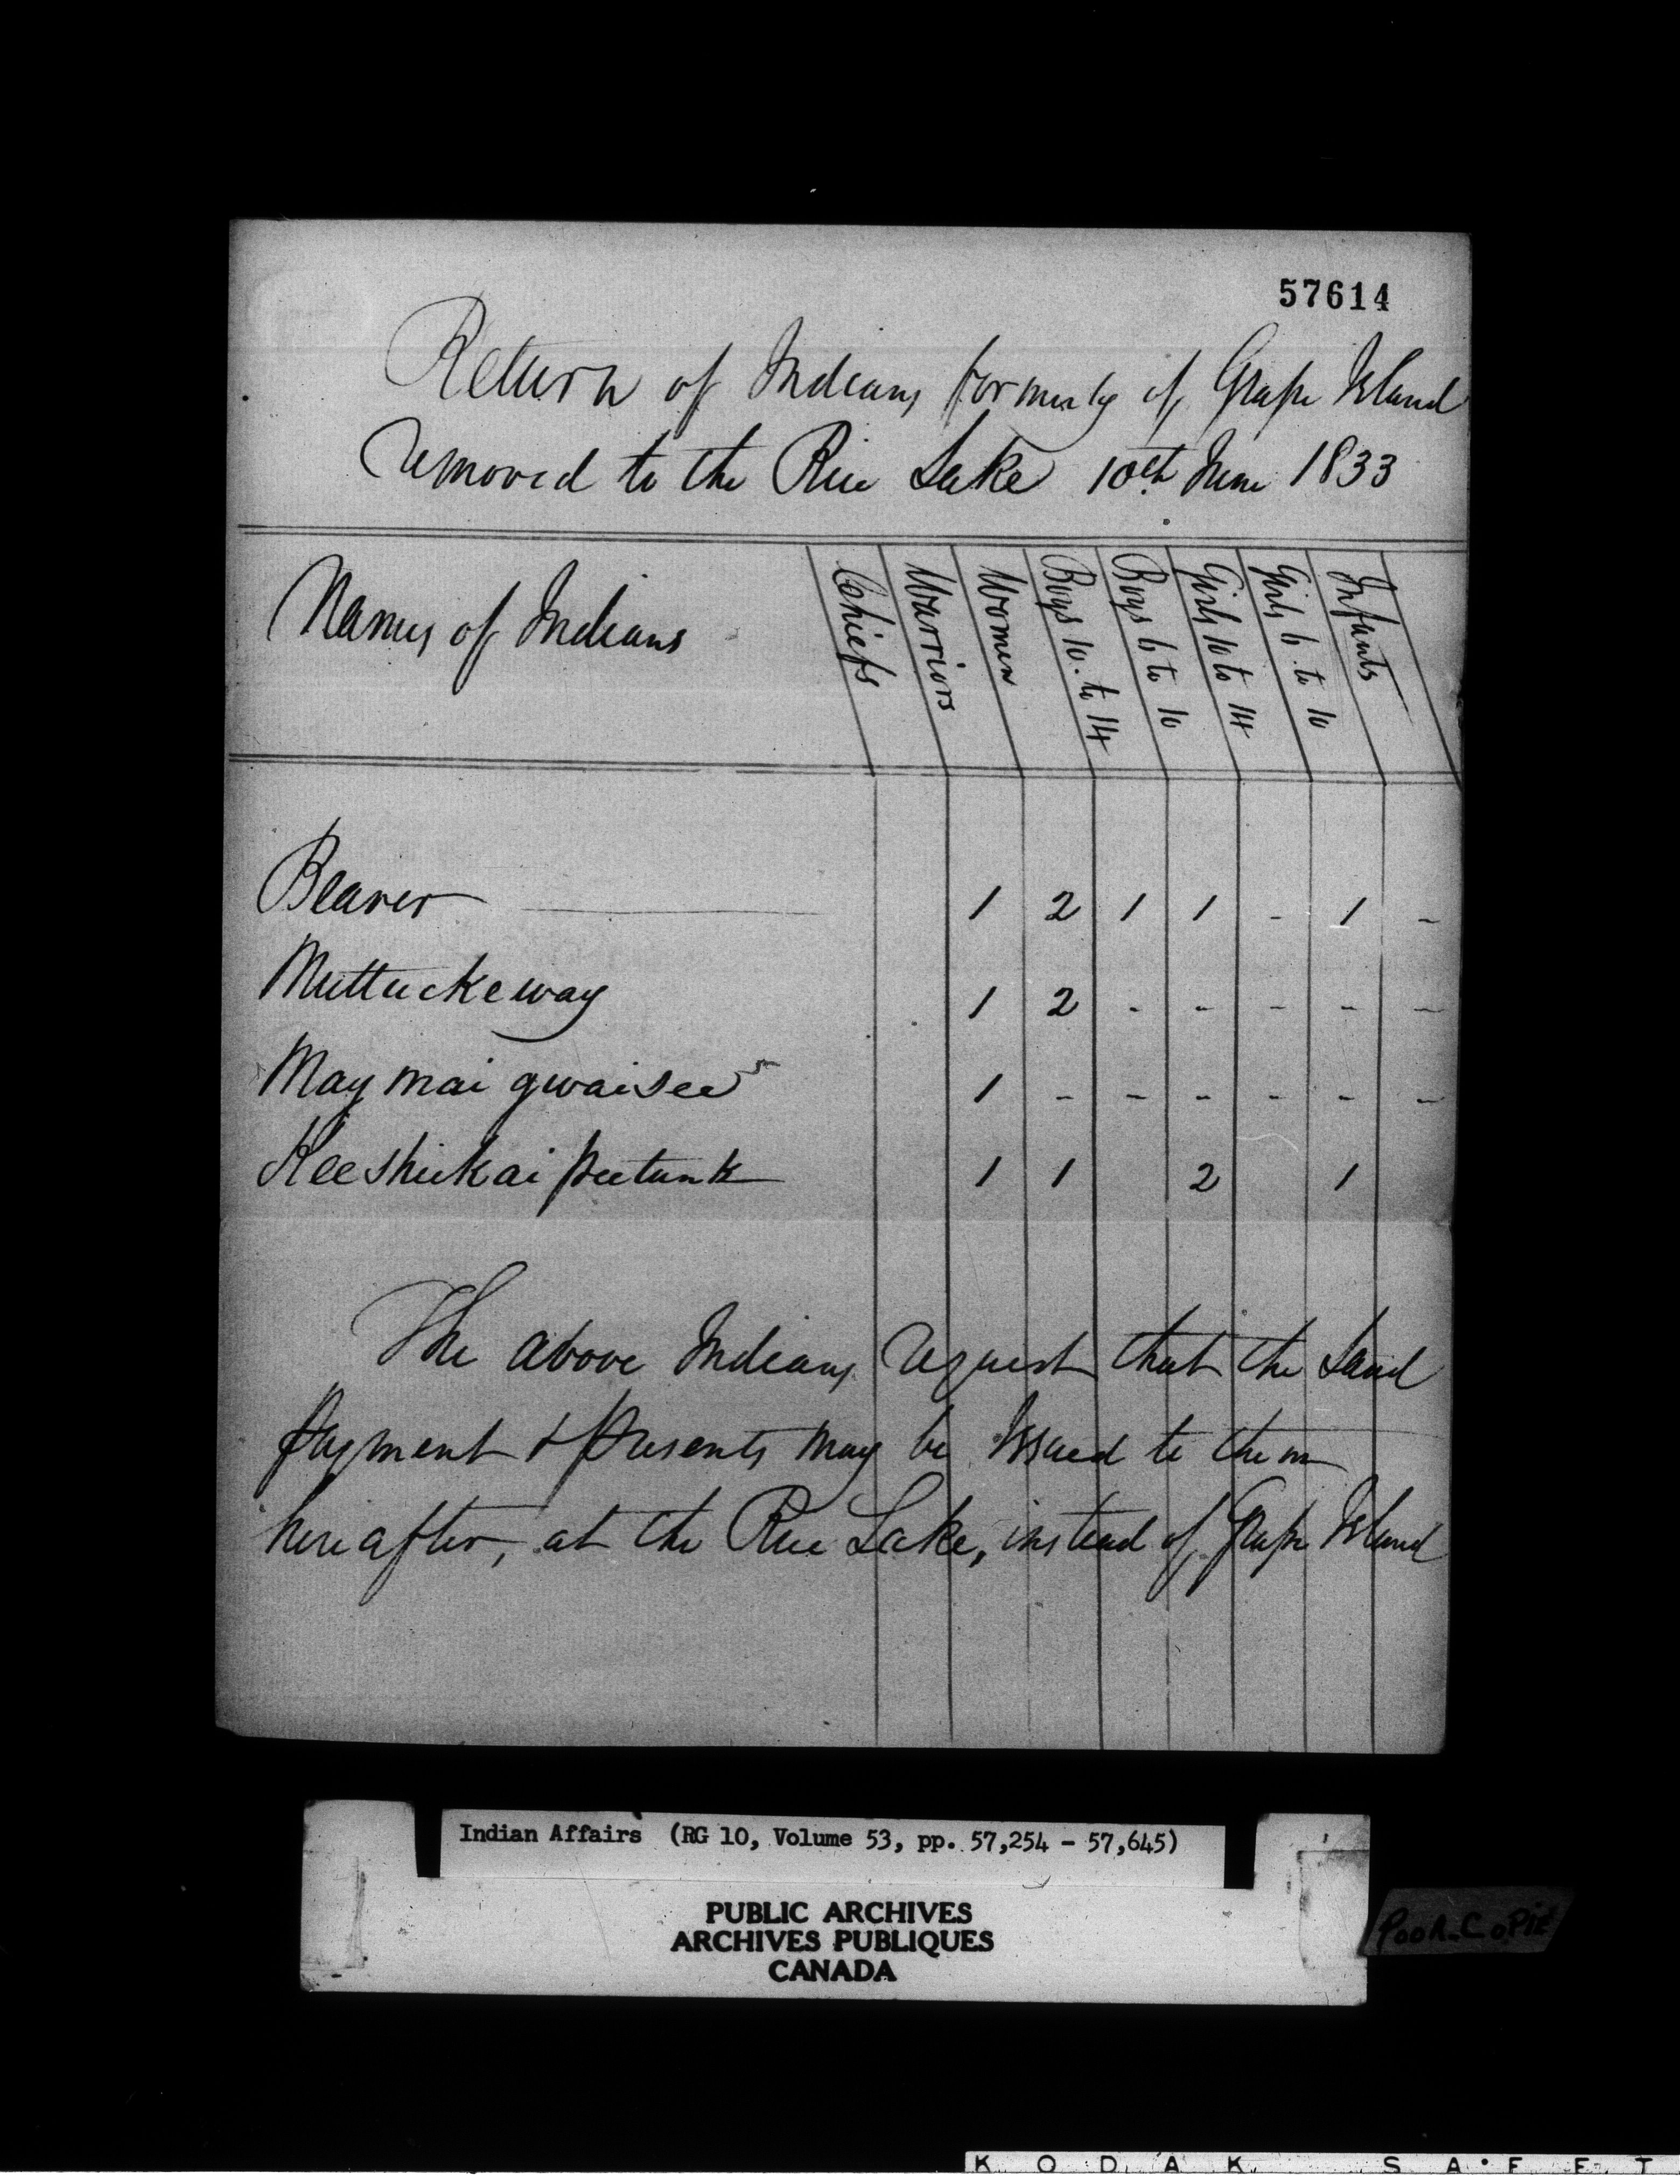 57614
Return of Indians formerly of Grape Island
removed to the Rice Lake 10th June 1833
Names of Indians Chiefs Warriors Women Boys 10 to 14 Boys 6 to 10 Girls 10 to 14 Girls 6 to 10 Infants
Beaver 1 2 1 1 - 1 -
Muttuckeway 1 2 - - - - -
May mai gwaisee 1 - - - - - -
Keeshickai peetunk 1 1 2 1
The above Indians request that the Land
payment & presents may be Issued to them
hereafter, at the Rice Lake, instead of Grape Island
Indian Affairs (RG 10, Volume 53, pp. 57,254 - 57,645)
PUBLIC ARCHIVES
ARCHIVES PUBLIQUES
CANADA
POOR COPIE
KODAK SAFET